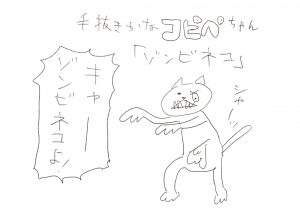 手抜きかな コピペちゃん
「ゾンビネコ」
シャーッ
キャー
ゾンビネコよ!